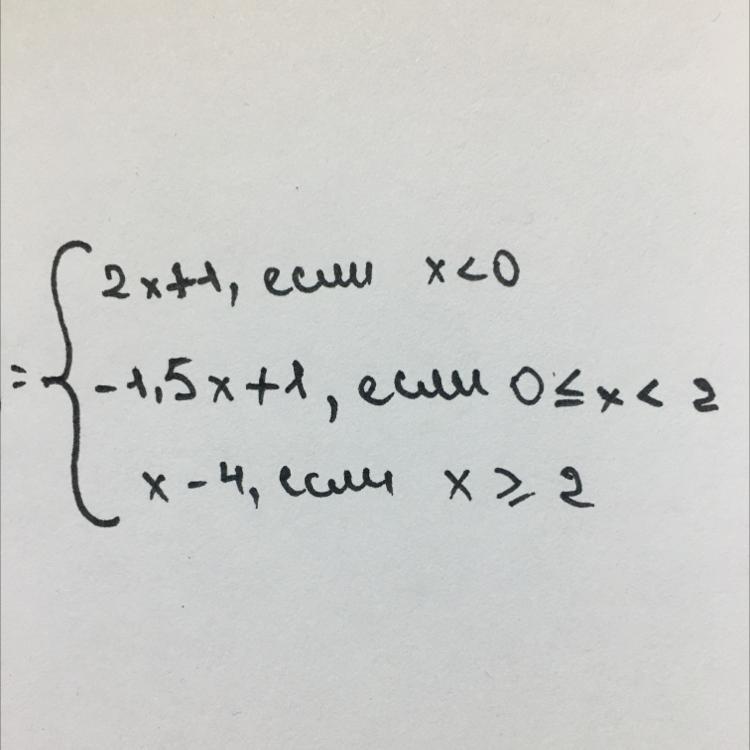 2x+1, если x<0
= -1,5x+1, если 0≤x< 2
x-4, если x ≥ 2